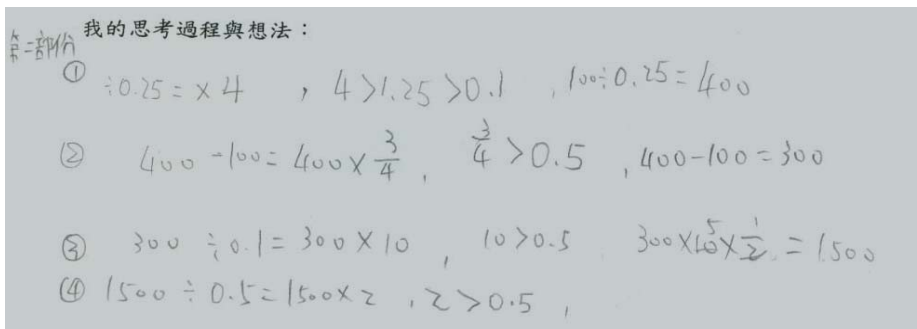 我的思考過程與想法：
第二部份
① ÷0.25=×4 , 4>1.25>0.1 , 100÷0.25=400
② 400-100=400×3/4 , 3/4>0.5 , 400-100=300
③ 300÷0.1=300×10 , 10>0.5 300×10 5×1/2=1500
④ 1500÷0.5=1500×2 , 2>0.5 ,